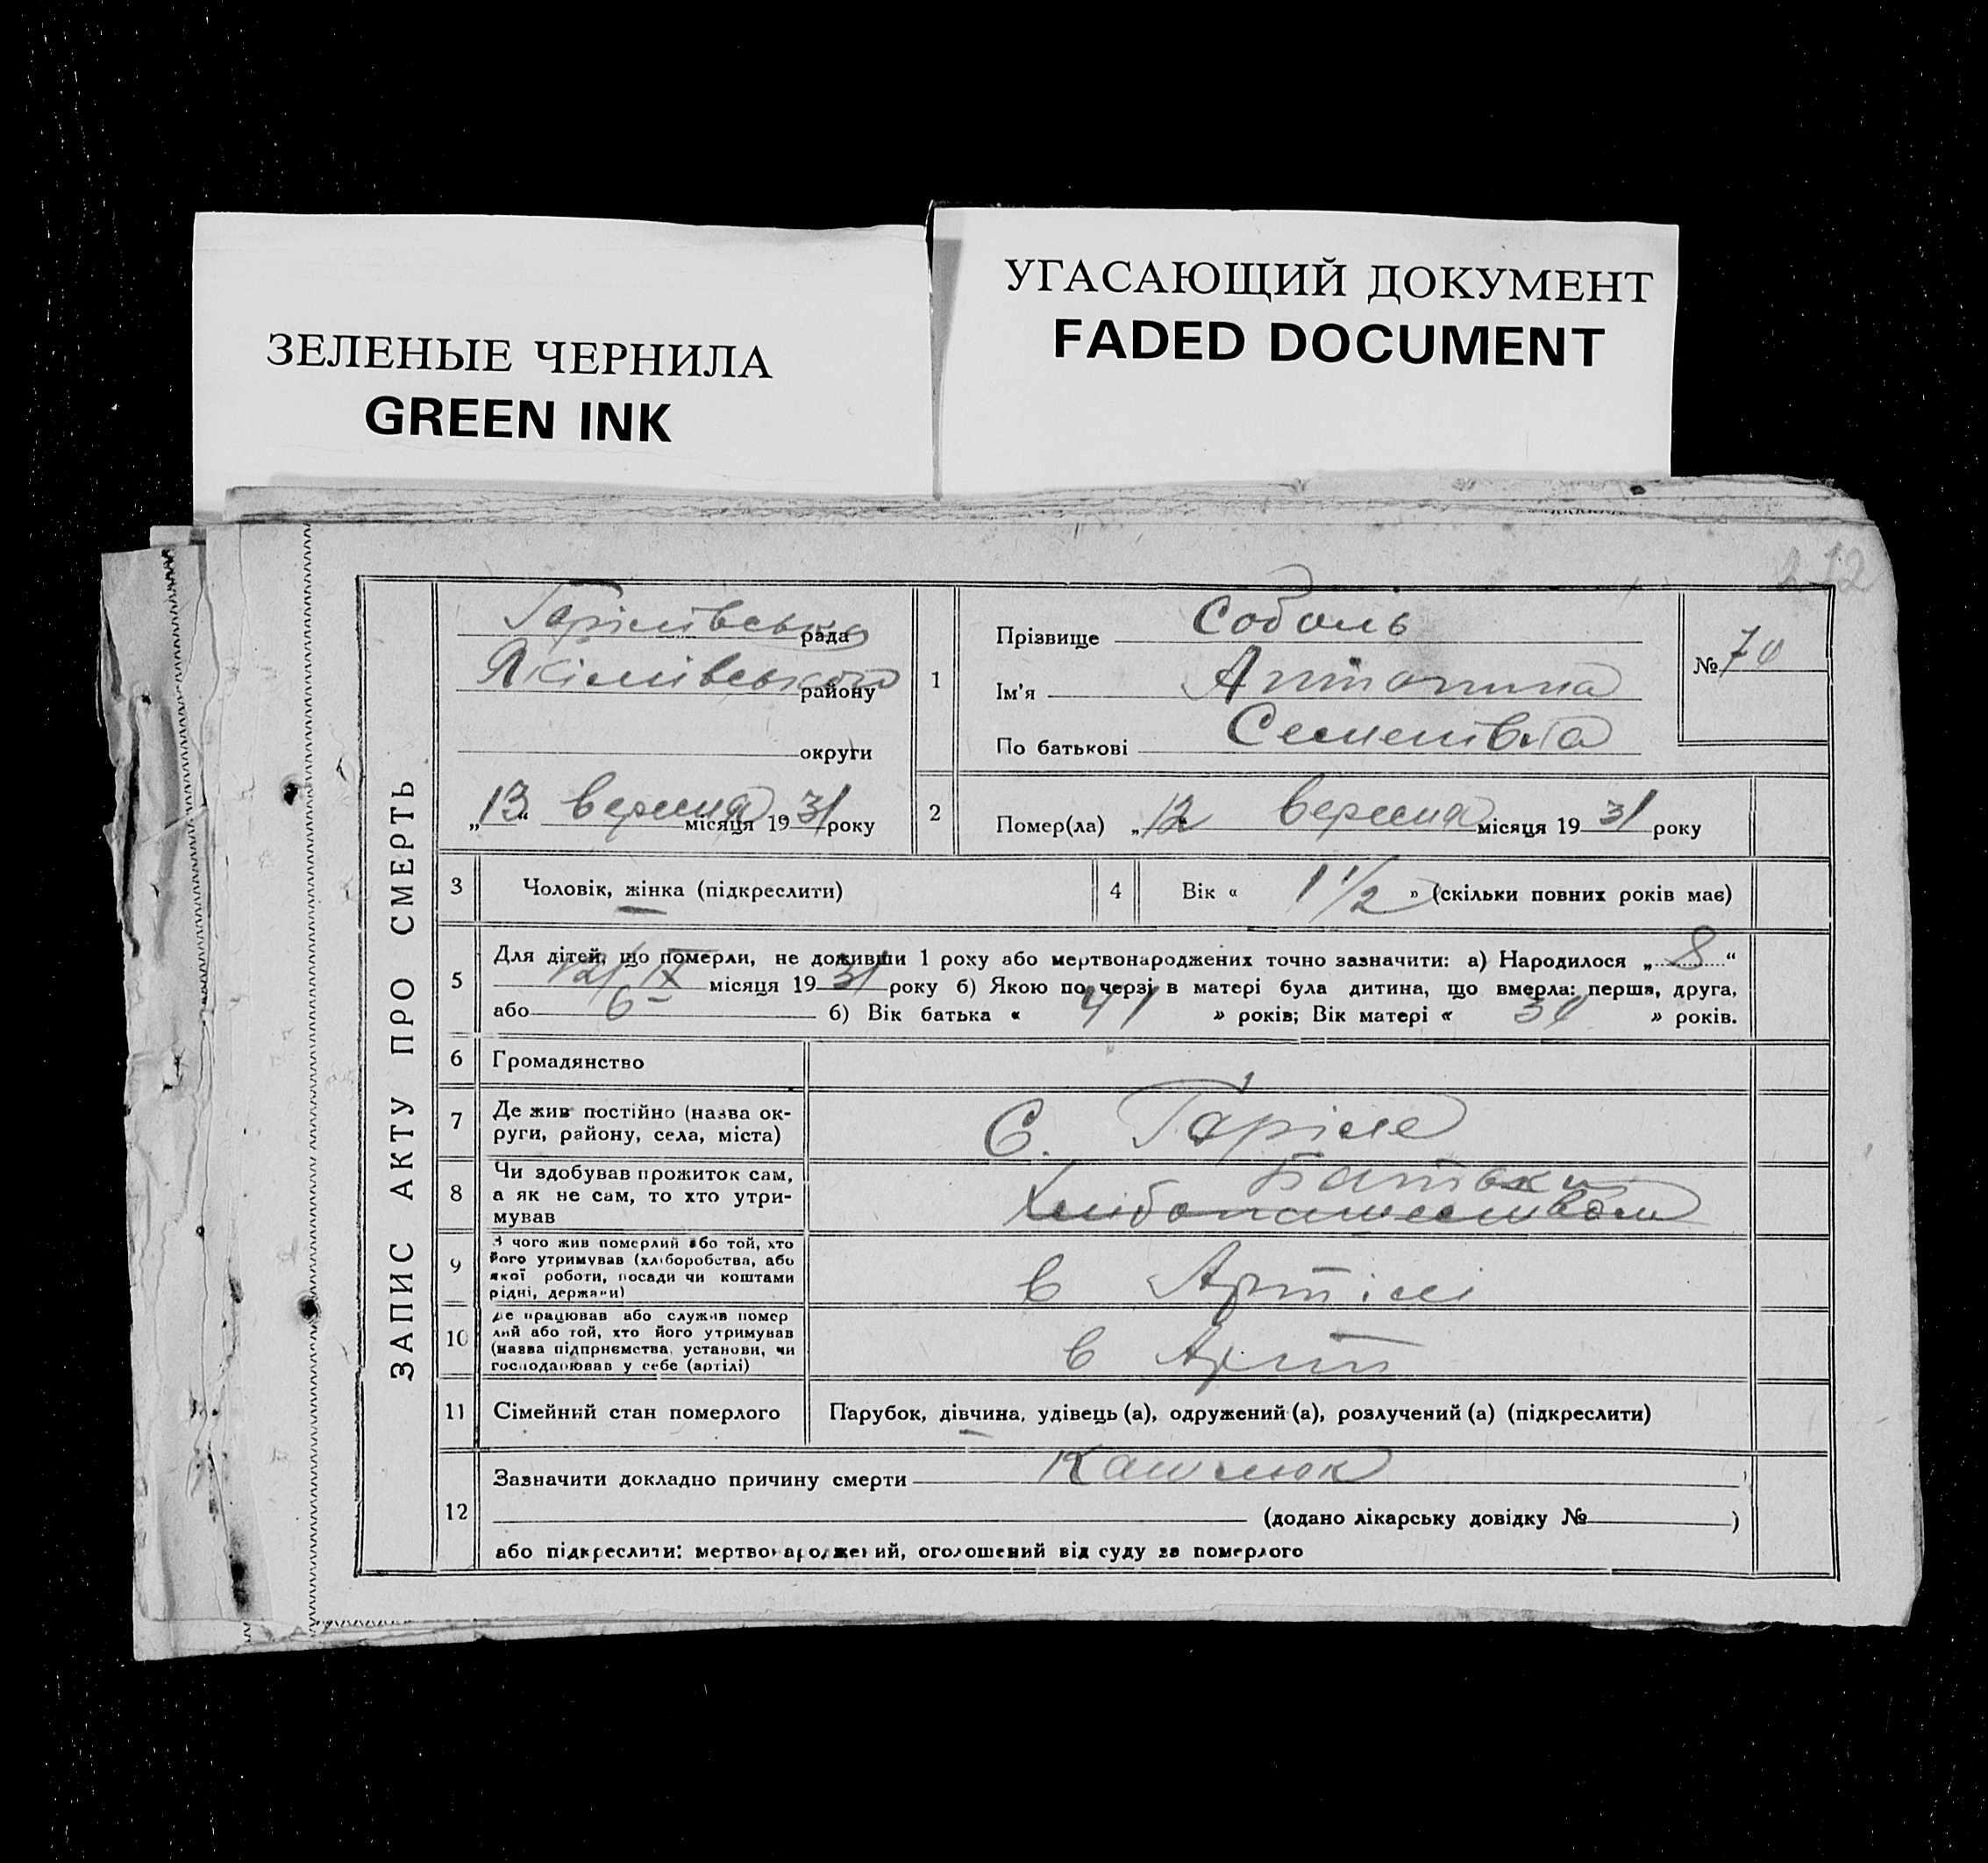 ЗЕЛЕНЫЕ ЧЕРНИЛА
GREEN INK
УГАСАЮЩИЙ ДОКУМЕНТ
FADED DOCUMENT
212
ЗАПИС АКТУ ПРО СМЕРТЬ
Гарілівська рада
Якімівського району
округи
„13“ вересня місяця 1931 року
1
Прізвище Соболь
Ім'я Антонина
По батькові Семенівна
№ 70
2
Помер(ла) „12 вересня місяця 1931 року
3 Чоловік, жінка (підкреслити)
4 Вік « 1 1/2 » (скільки повних років має)
5 Для дітей, що померли, не доживши 1 року або мертвонароджених точно зазначити: а) Народилося „8“
12/IX місяця 1931 року б) Якою по черзі в матері була дитина, що вмерла: перша, друга,
або 6 б) Вік батька « 41 » років; Вік матері « 30 » років.
6 Громадянство
7 Де жив постійно (назва ок-
руги, району, села, міста)
С. Гаріле
8 Чи здобував прожиток сам,
а як не сам, то хто утри-
мував
Батьки
9 З чого жив померлий або той, хто
його утримував (хліборобства, або
якої роботи, посади чи коштами
рідні, держави)
в Артілі
10 Де працював або служив помер
лий або той, хто його утримував
(назва підприємства, установи, чи
господарював у себе (артілі)
в Арт
11 Сімейний стан померлого
Парубок, дівчина, удівець (а), одружений (а), розлучений (а) (підкреслити)
12 Зазначити докладно причину смерти Кашлюк
(додано лікарську довідку № )
або підкреслити: мертвонароджений, оголошений від суду за померлого